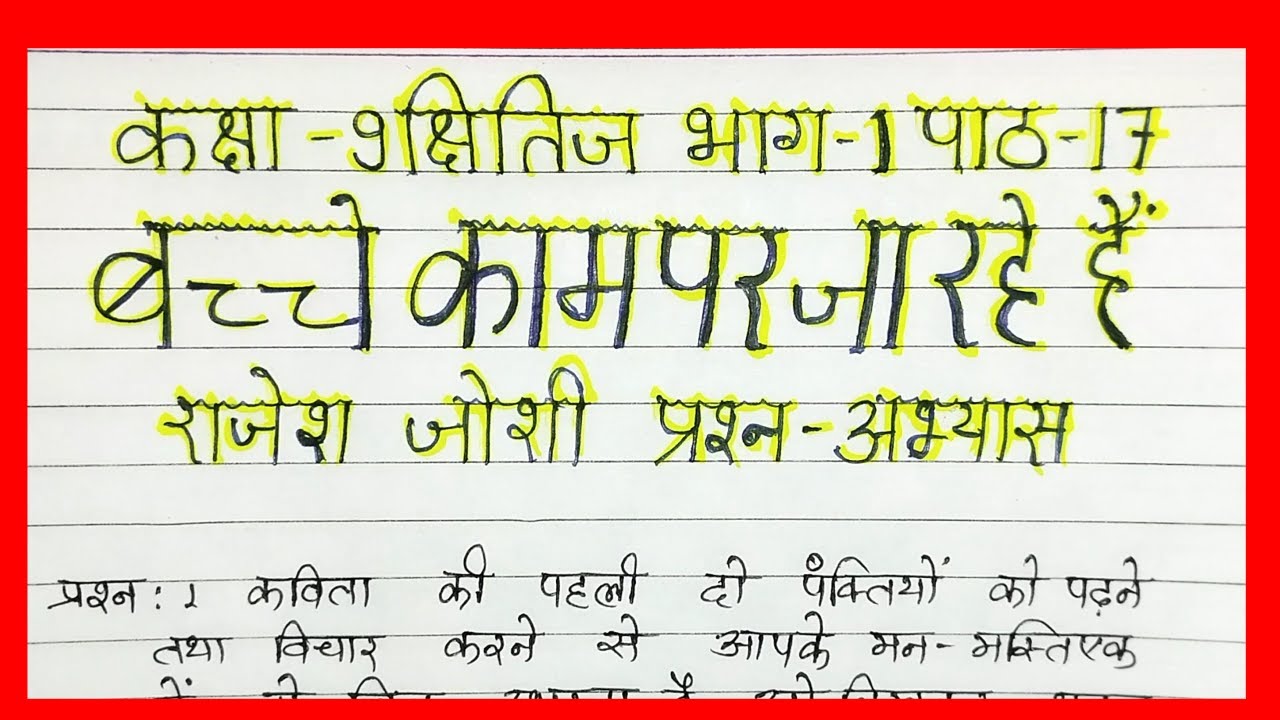 कक्षा -9क्षितिज भाग-1 पाठ-17
बच्चे काम पर जा रहे हैं
राजेश जोशी प्रश्न-अभ्यास
प्रश्न: 1 कविता की पहली दो पंक्तियों को पढ़ने
तथा विचार करने से आपके मन-मस्तिष्क